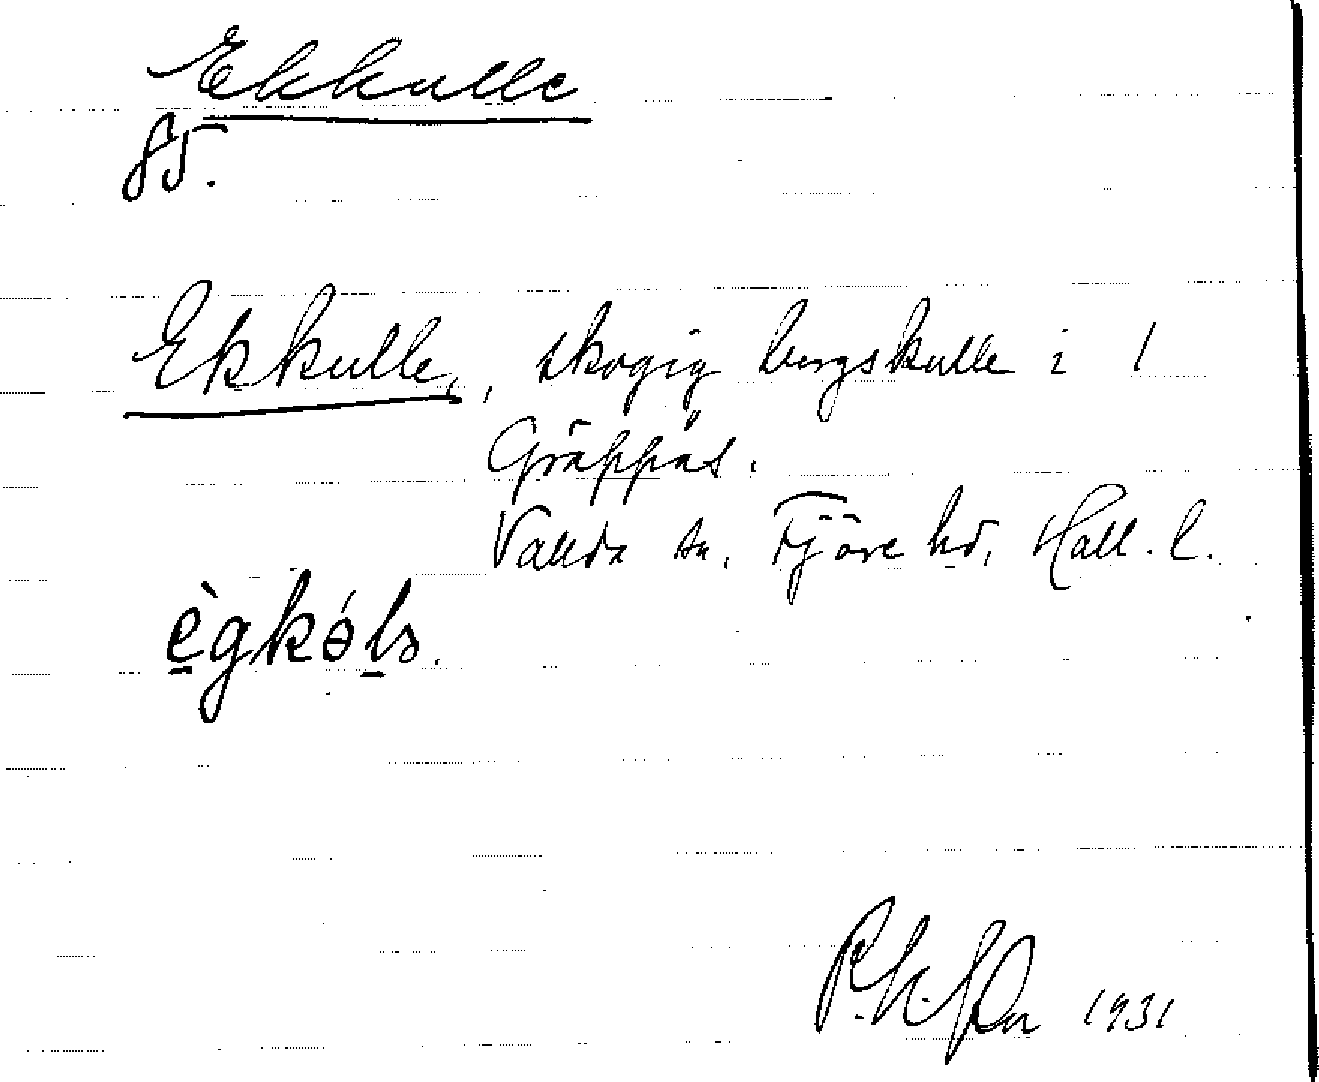 Ekkulle
85.
Ekkulle, skogig bergskulle i 1
Gräppås.
Vallda sn. Fjäre hd, Hall. l.
ègkɵ́lə.
1931